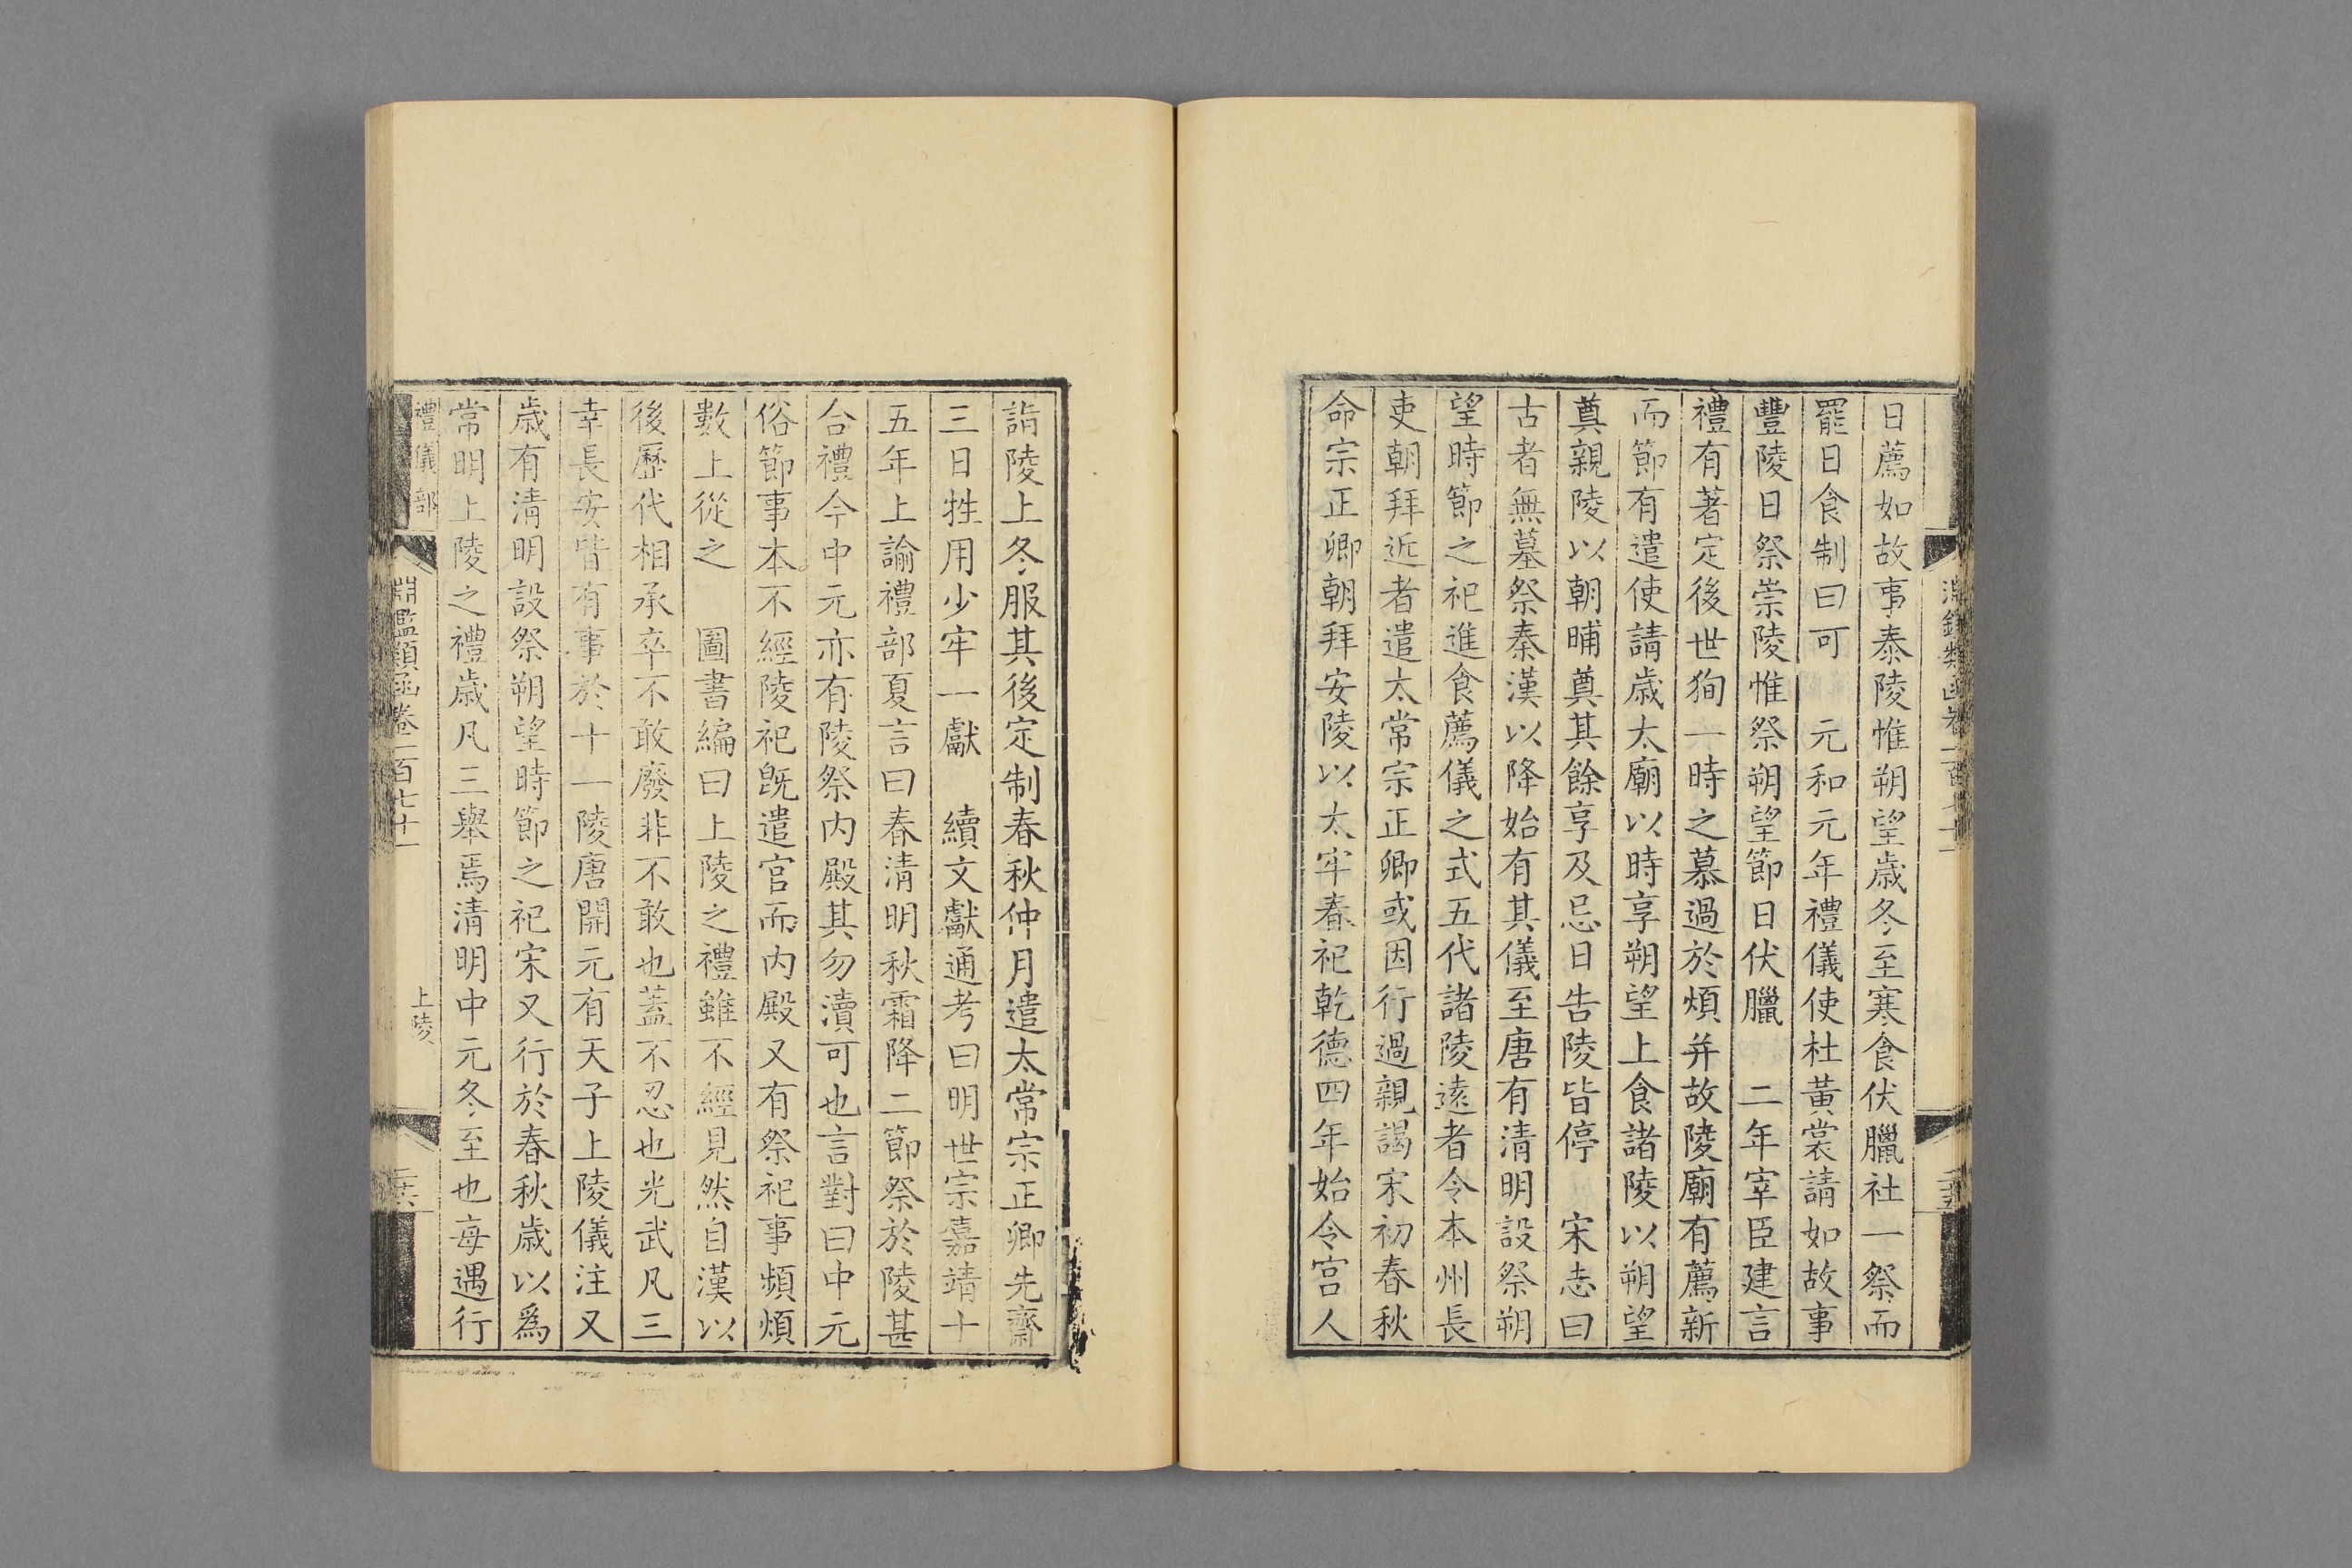 日薦如故事泰陵惟朔望歲冬至寒食伏臘社一祭而
罷日食制曰可　元和元年禮儀使杜黃裳請如故事
豐陵日祭崇陵惟祭朔望節日伏臘　二年宰臣建言
禮有著定後世狥一時之慕過於煩并故陵廟有薦新
而節有遣使請歲太廟以時享朔望上食諸陵以朔望
奠親陵以朝晡奠其餘享及忌日告陵皆停　宋志曰
古者無墓祭秦漢以降始有其儀至唐有清明設祭朔
望時節之祀進食薦儀之式五代諸陵遠者令本州長
吏朝拜近者遣太常宗正卿或因行過親謁宋初春秋
命宗正卿朝拜安陵以太牢春祀乾德四年始令宮人
詣陵上冬服其後定制春秋仲月遣太常宗正卿先齋
三日牲用少牢一獻　續文獻通考曰明世宗嘉靖十
五年上諭禮部夏言曰春清明秋霜降二節祭於陵甚
合禮今中元亦有陵祭内殿其勿瀆可也言對曰中元
俗節事本不經陵祀既遣官而内殿又有祭祀事頻煩
數上從之　圖書編曰上陵之禮雖不經見然自漢以
後歷代相承卒不敢廢非不敢也蓋不忍也光武凡三
幸長安皆有事於十一陵唐開元有天子上陵儀注又
歲有清明設祭朔望時節之祀宋又行於春秋歲以爲
常明上陵之禮歲凡三舉焉清明中元冬至也每遇行
禮儀部　淵鑑類函卷一百七十一　上陵　二十六